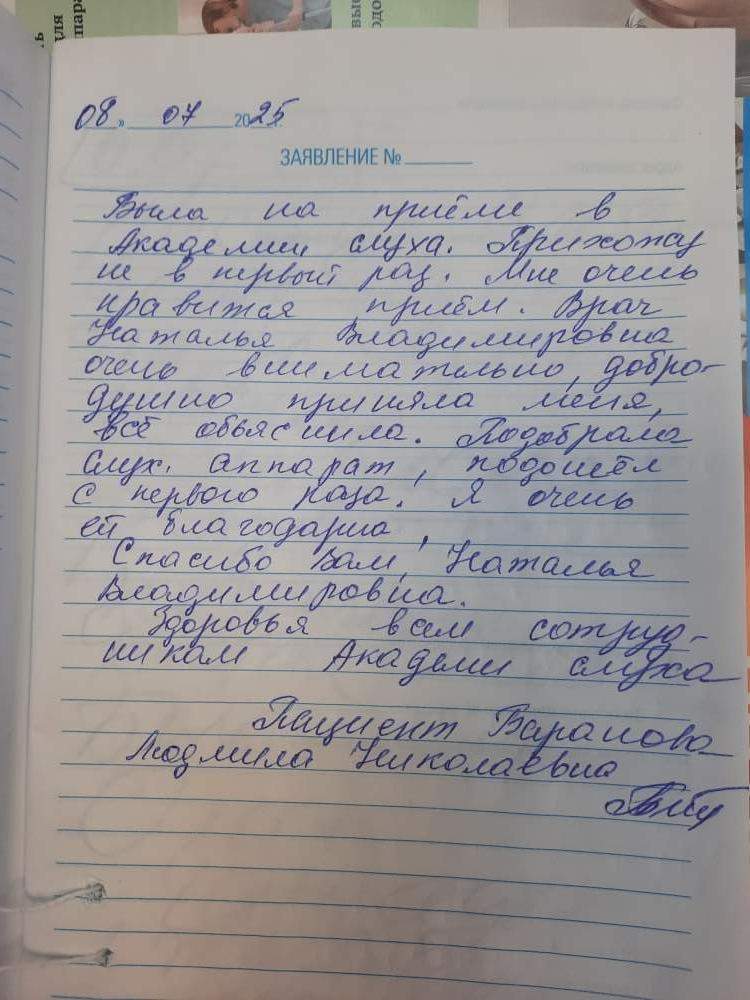 08 » 07 2025 г.
ЗАЯВЛЕНИЕ №
Была на приёме в
Академии слуха. Прихожу
не в первый раз. Мне очень
нравится приём. Врач
Наталья Владимировна
очень внимательно, добро-
душно приняла меня,
всё объяснила. Подобрала
слух. аппарат, подошёл
с первого раза. Я очень
ей благодарна,
Спасибо Вам, Наталья
Владимировна.
Здоровья всем сотруд-
никам Академи слуха
Пациент Баранова
Людмила Николаевна